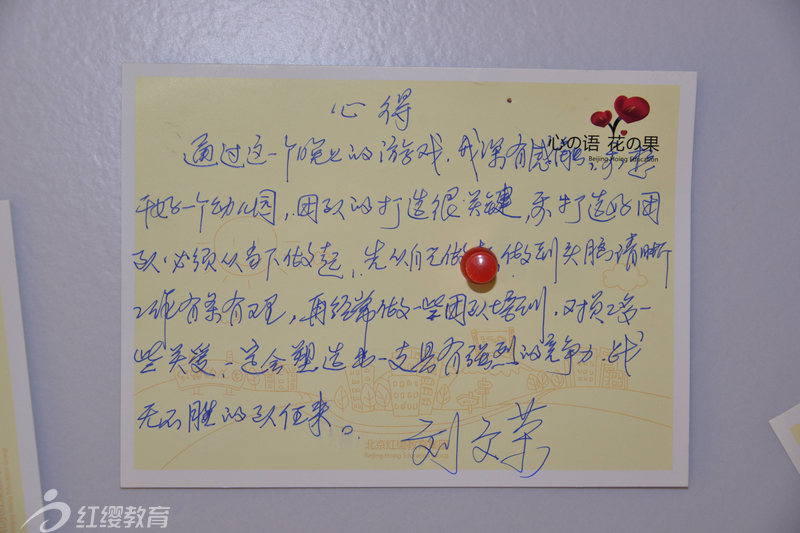 心得
心の语 花の果
Beijing Hoing Education
通过这一个晚上的游戏,我深有感触,要想
干好一个幼儿园,团队的打造很关键,要打造好团
队必须从当下做起,先从自己做起,做到头脑清晰
工作有条有理,再经常做一些团队培训,对员工多一
些关爱,这会塑造出一支具有强烈的竞争力,战
无不胜的队伍来。
刘文荣
北京红缨教育
Beijing Hoing Education
红缨教育